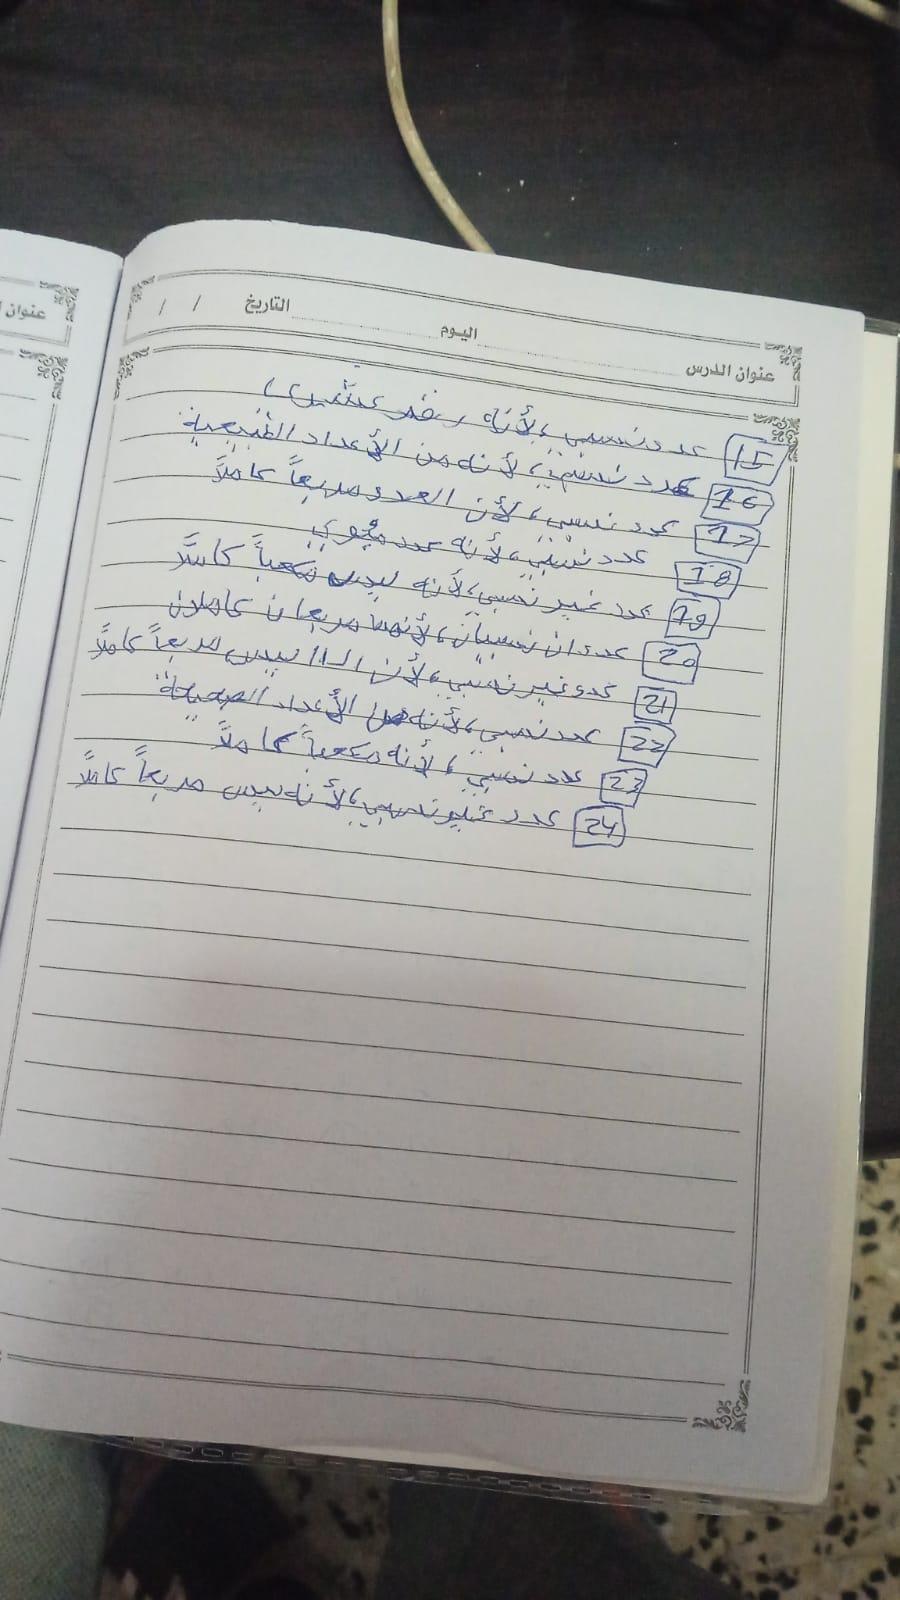 عنوان ا
عنوان الدرس اليوم التاريخ / /
15 عدد نسبي، لأنه عشري
16 عدد نسبي، لأنه من الأعداد الطبيعية
17 عدد نسبي، لأن العدد مربعاً كاملاً
18 عدد نسبي، لأنه عدد
19 عدد غير نسبي، لأنه ليس مكعباً كاملاً
20 عددان نسبيان، لأنهما مربعان كاملان
21 عدد غير نسبي، لأن الـ 11 ليس مربعاً كاملاً
22 عدد نسبي، لأنه من الأعداد الصحيحة
23 عدد نسبي، لأنه مكعباً كاملاً
24 عدد غير نسبي، لأنه ليس مربعاً كاملاً